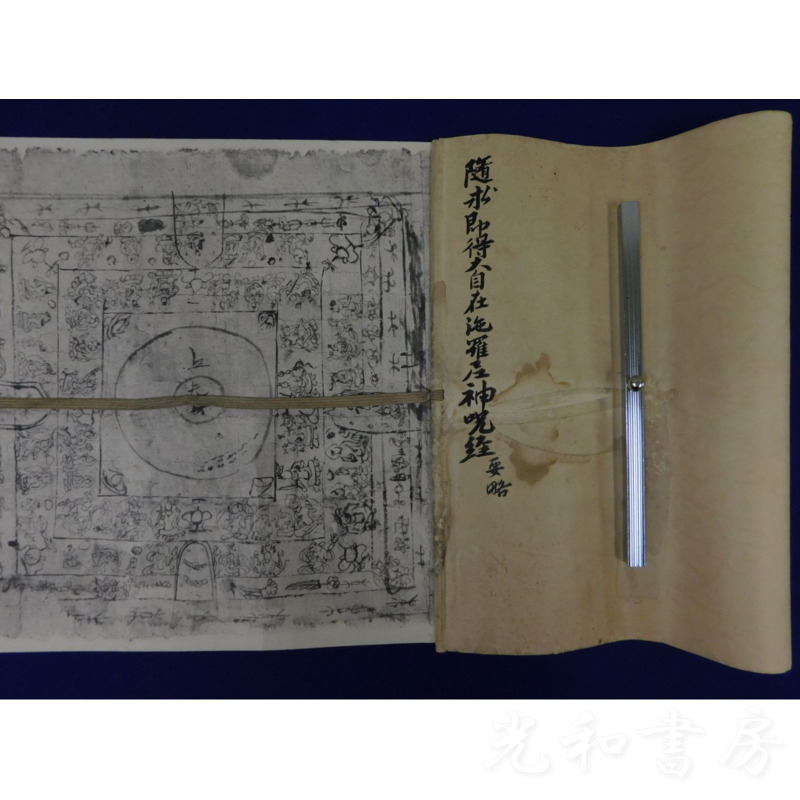 隨求即得大自在陁羅尼神呪経 要略
光和書房